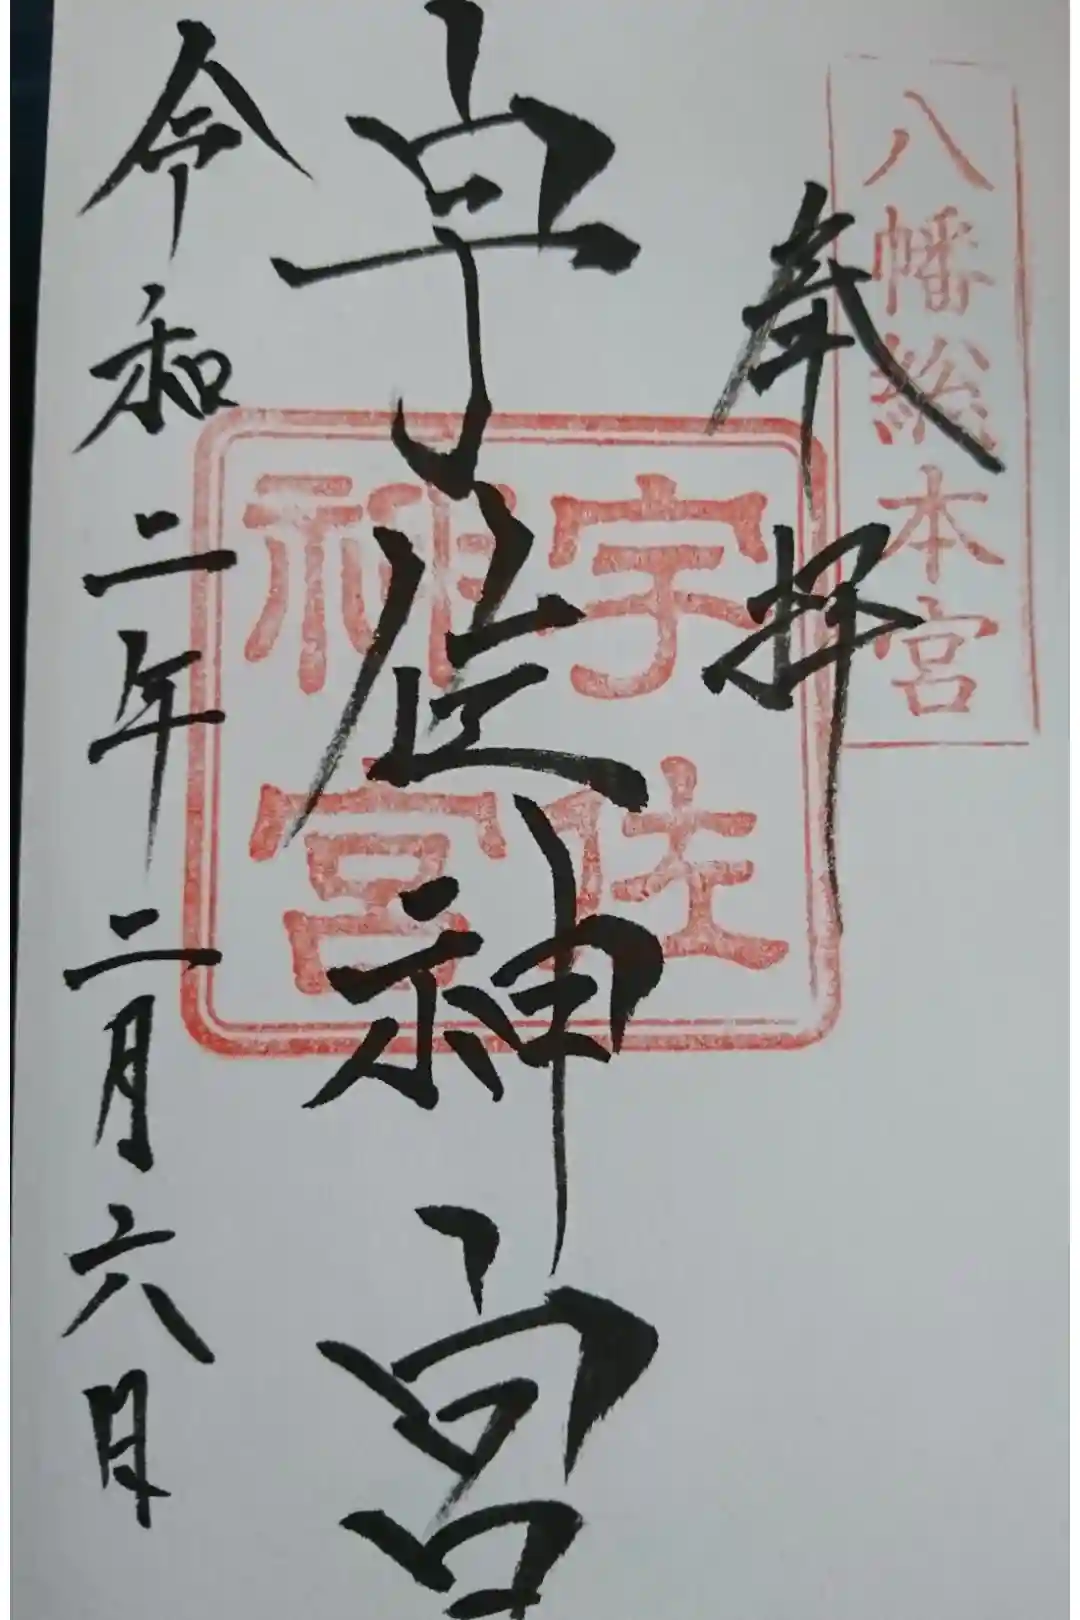 八幡総本宮
奉拝
宇佐神宮
宇佐
神宮
令和二年二月六日